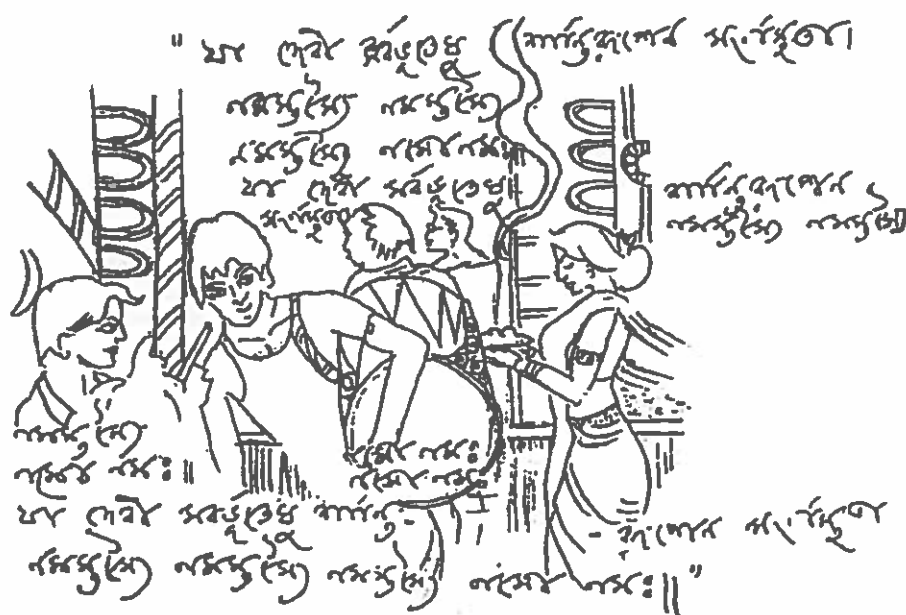 " যা দেবী সর্বভূতেষু শান্তিরূপেণ সংস্থিতা।
নমস্তস্যৈ নমস্তস্যৈ
নমস্তস্যৈ নমোনমঃ।
যা দেবী সর্বভূতেষু শান্তিরূপেণ
সংস্থিতা নমস্তস্যৈ নমস্তস্যৈ
নমস্তস্যৈ নমো নমঃ
নমোঃ নমঃ॥ নমো নমঃ
যা দেবী সর্বভূতেষু শান্তি- -রূপেণ সংস্থিতা
নমস্তস্যৈ নমস্তস্যৈ নমস্তস্যৈ নমোঃ নমঃ॥"